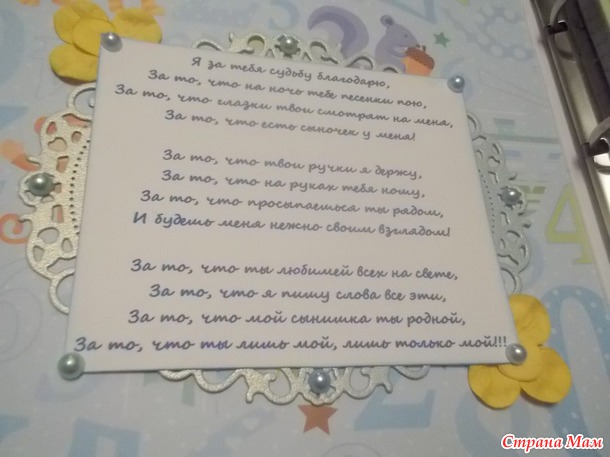 Я за тебя судьбу благодарю,
За то, что на ночь тебе песенки пою,
За то, что глазки твои смотрят на меня,
За то, что есть сыночек у меня!
За то, что твои ручки я держу,
За то, что на руках тебя ношу,
За то, что просыпаешься ты рядом,
И будешь меня нежно своим взглядом!
За то, что ты любимей всех на свете,
За то, что я пишу слова все эти,
За то, что мой сынишка ты родной,
За то, что ты лишь мой, лишь только мой!!!
Страна Мам